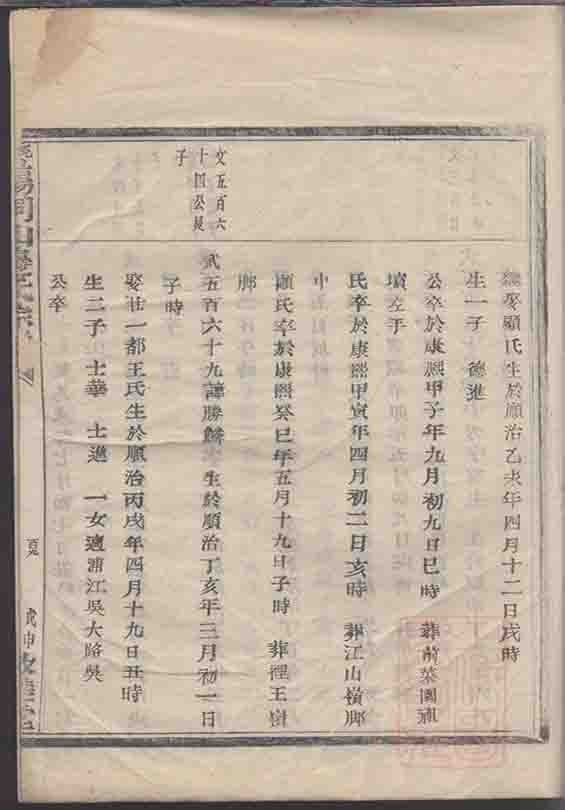 繼娶顧氏生於順治乙未年四月十二日戌時
生一子　德進
公卒於康熙甲子年九月初九日巳時　葬前菜園
墳左手
氏卒於康熙甲寅年四月初二日亥時　葬江山横廊
中
顧氏卒於康熙癸巳年五月十九日子時　葬裡王樹
廊
文五百六
十四公長
子
武五百六十九諱勝麟　生於順治丁亥年三月初一日
子時
娶壮一都王氏生於順治丙戌年四月十九日丑時
生二子　士華　士進　一女適浦江吳大路吳
公卒